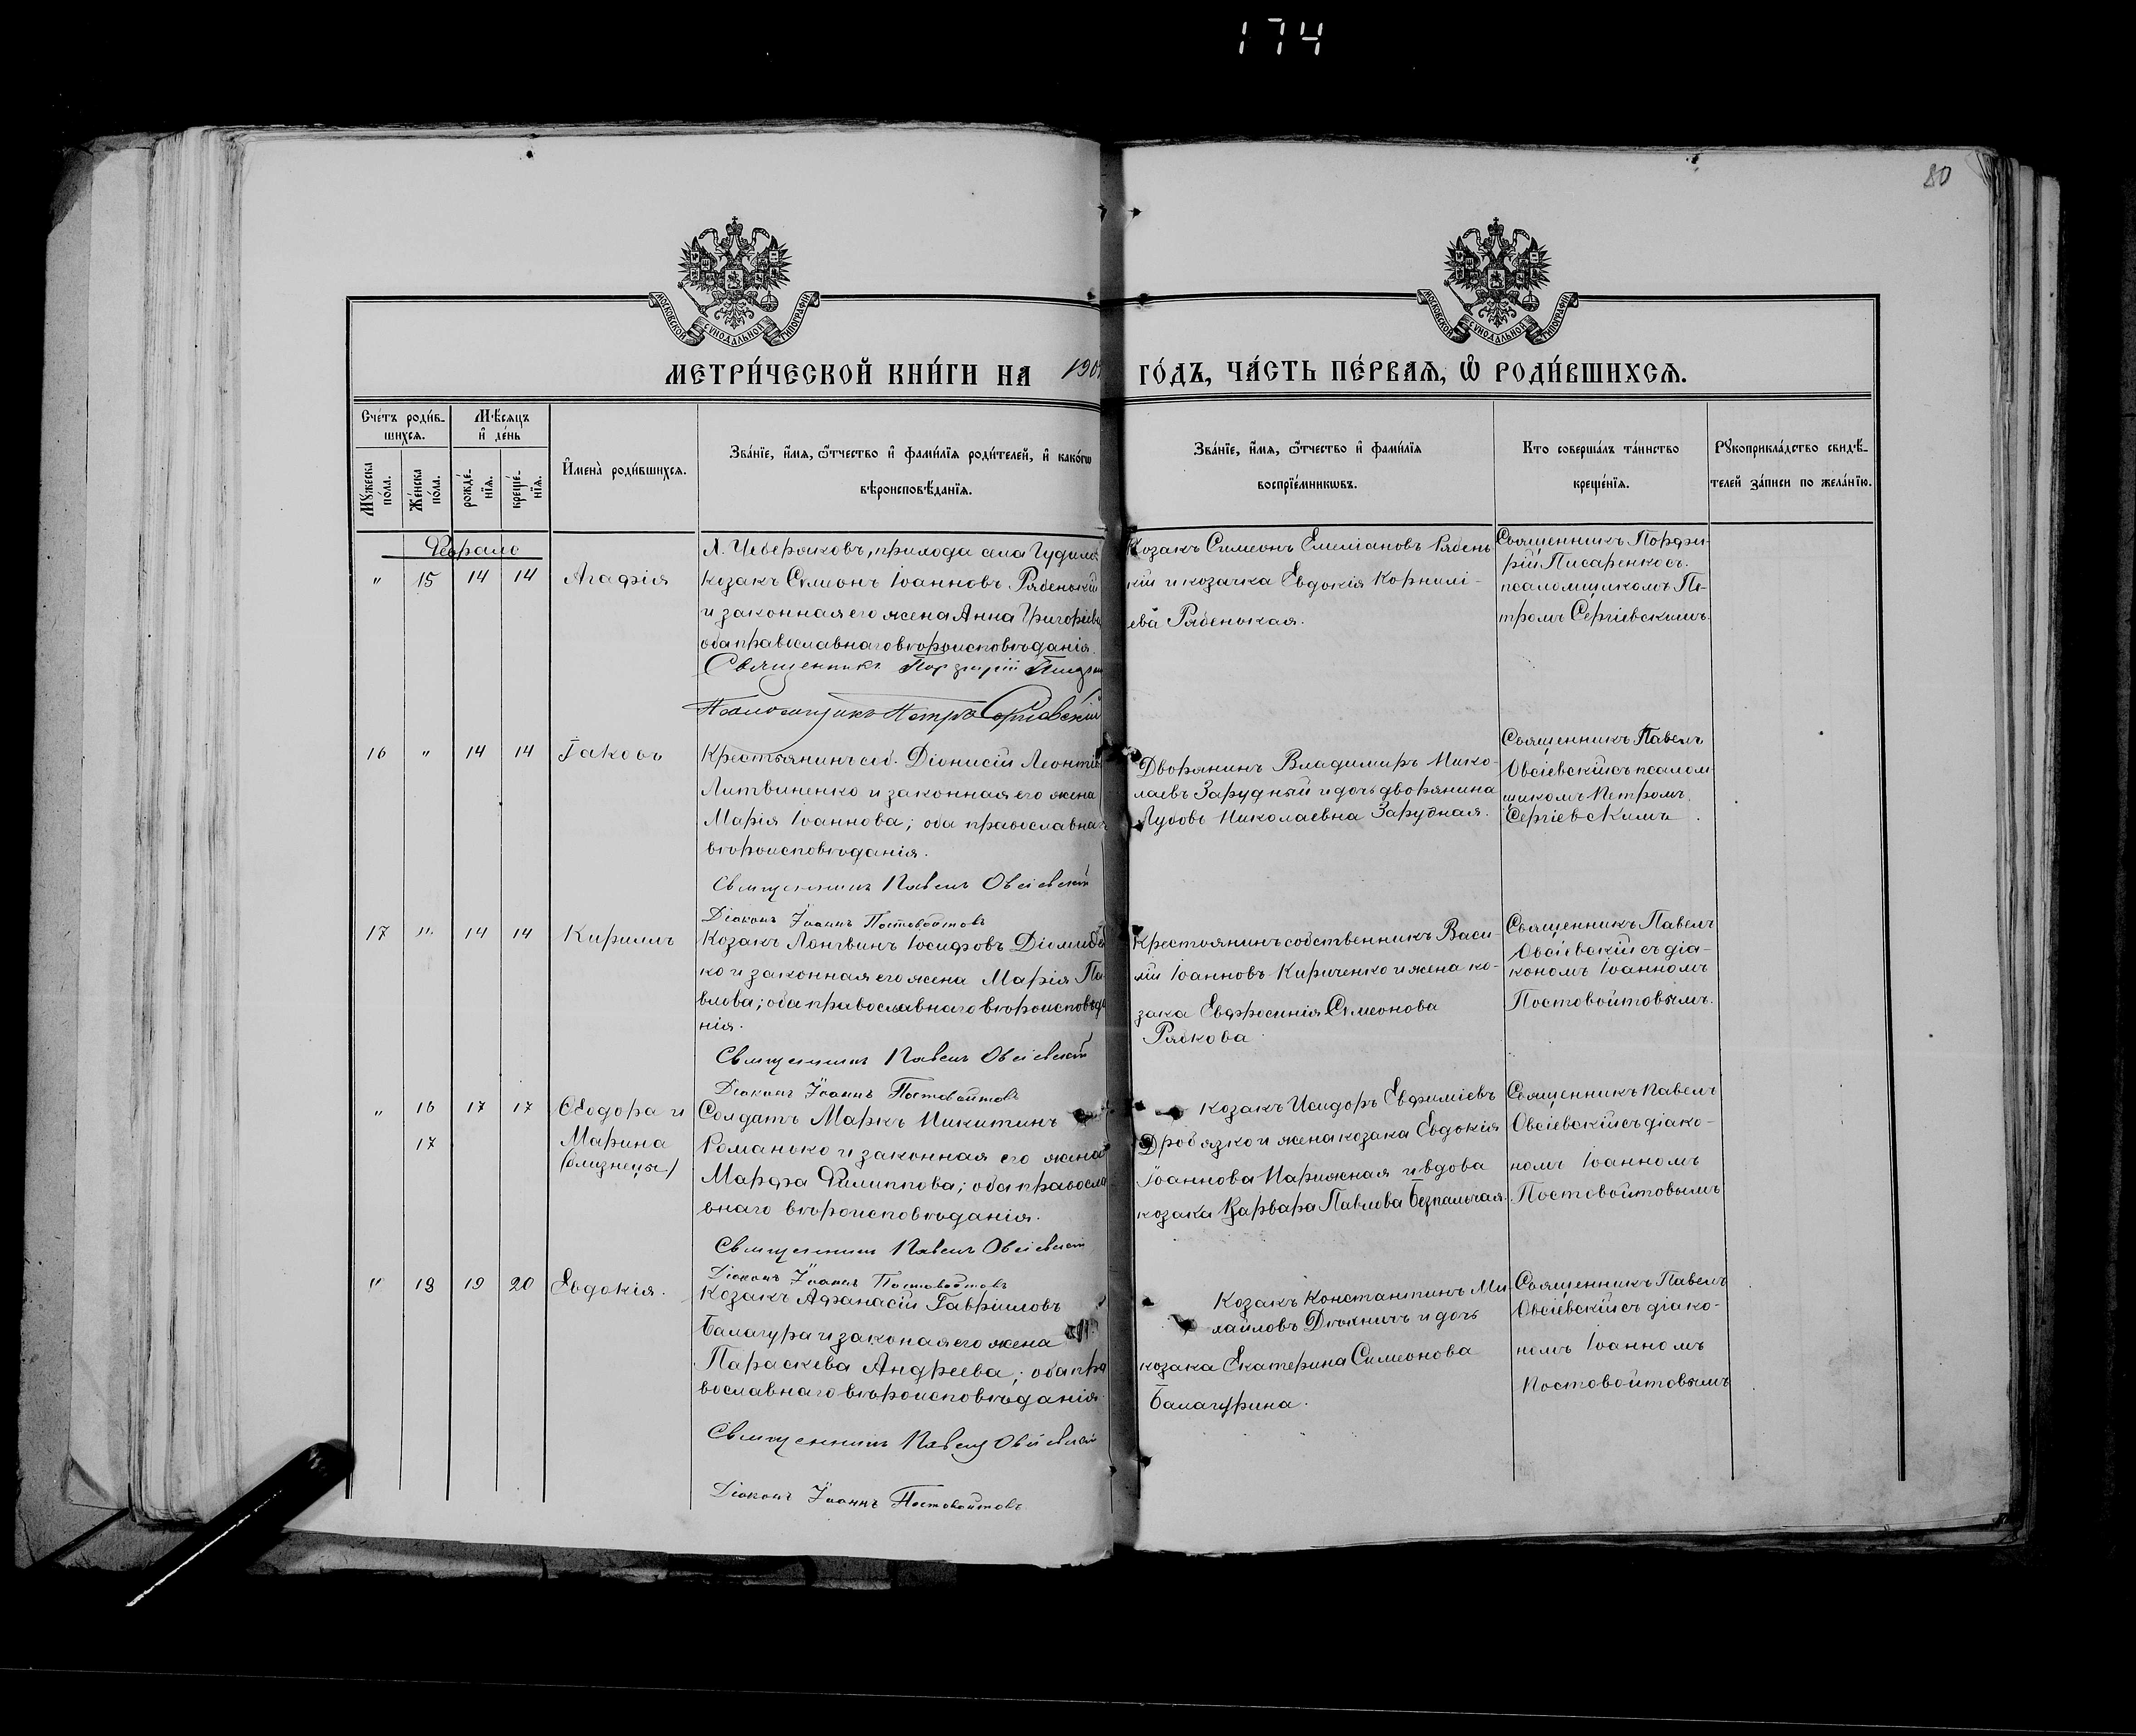 174
80
МОСКОВСКОЙ СѴНОДАЛЬНОЙ ТИПОГРАФІИ
МОСКОВСКОЙ СѴНОДАЛЬНОЙ ТИПОГРАФІИ
МЕТРИ́ЧЕСКОЙ КНИ́ГИ НА 190
ГО́ДЪ, ЧА́СТЬ ПЕ́РВАѦ, Ѡ҆ РОДИ́ВШИХСѦ.
Сче́тъ роди́в-
шихсѧ.
Мꙋ́жеска по́ла.
Же́нска по́ла.
Мѣ́сѧцъ
и҆ де́нь
рожде́-нїѧ.
креще́-нїѧ.
И҆мена̀ роди́вшихсѧ.
Зва́нїе, и҆́мѧ, ѻ҆́тчество и҆ фами́лїѧ роди́телей, и҆ како́гѡ
вѣроисповѣ́данїѧ.
Зва́нїе, и҆́мѧ, ѻ҆́тчество и҆ фами́лїѧ
воспрїе́мникѡвъ.
Кто соверша́лъ та́инство
креще́нїѧ.
Рꙋкоприкла́дство свидѣ́-
телей за́писи по жела́нїю.
Февраль
" 15 14 14 Агафія
Х. Чеберяковъ, прихода села
козакъ Семіонъ Іоанновъ Рябенькій
и законная его жена Анна Григоріева
оба православнаго вѣроисповѣданія.
Священникъ Порфирій
Псаломщикъ Петръ Сергіевскій
Козакъ Симеонъ Емеліановъ Рябень-
кій и козачка Евдокія Корнилі-
ева Рябенькая.
Священникъ Порфи-
рій Писаренко съ
псаломщикомъ Пе-
тромъ Сергіевскимъ.
16 " 14 14 Іаковъ
Крестьянинъ соб. Діонисій
Литвиненко и законная его жена
Марія Іоаннова; оба православнаг
вѣроисповѣданія.
Священникъ Павелъ Овсіевскій
Діаконъ Іоаннъ Постовойтовъ
Дворянинъ Владимиръ Нико-
лаевъ Зарудный и дочь дворянина
Любовь Николаевна Зарудная.
Священникъ Павелъ
Овсіевскій съ псалом
щикомъ Петромъ
Сергіевскимъ.
17 " 14 14 Кириллъ
Козакъ Лонгвинъ Іосифовъ
ко и законная его жена Марія Па-
влова; оба православнаго вѣроисповѣда
нія.
Священникъ Павелъ Овсіевскій
Діаконъ Іоаннъ Постовойтовъ
Крестьянинъ собственникъ Васи-
лій Іоанновъ Кириченко и жена ко-
зака Евфросинія Симеонова
Рябкова
Священникъ Павелъ
Овсіевскій съ діа-
кономъ Іоанномъ
Постовойтовымъ.
" 16 17 17 Ѳеодора и
17 Марина
(близнецы)
Солдатъ Маркъ Никитинъ
Романько и законная его жена
Марфа Филиппова; оба правосла
внаго вѣроисповѣданія.
Священникъ Павелъ Овсіевскій
Діаконъ Іоаннъ Постовойтовъ
Козакъ Исидоръ Евфиміевъ
Дробязко и жена козака Евдокія
Іоаннова Нарижная и вдова
козака Варвара Павлова Безпальчая.
Священникъ Павелъ
Овсіевскій съ діако-
номъ Іоанномъ
Постовойтовымъ
" 18 19 20 Евдокія.
Козакъ Афанасій Гавриловъ
Балагура и законая его жена
Параскева Андреева; оба пра
вославнаго вѣроисповѣданія.
Священникъ Павелъ Овсіевскій
Діаконъ Іоаннъ Постовойтовъ
Козакъ Константинъ Ми
хайловъ и дочь
козака Екатерина Симеонова
Балагурина.
Священникъ Павелъ
Овсіевскій съ діако-
номъ Іоанномъ
Постовойтовымъ